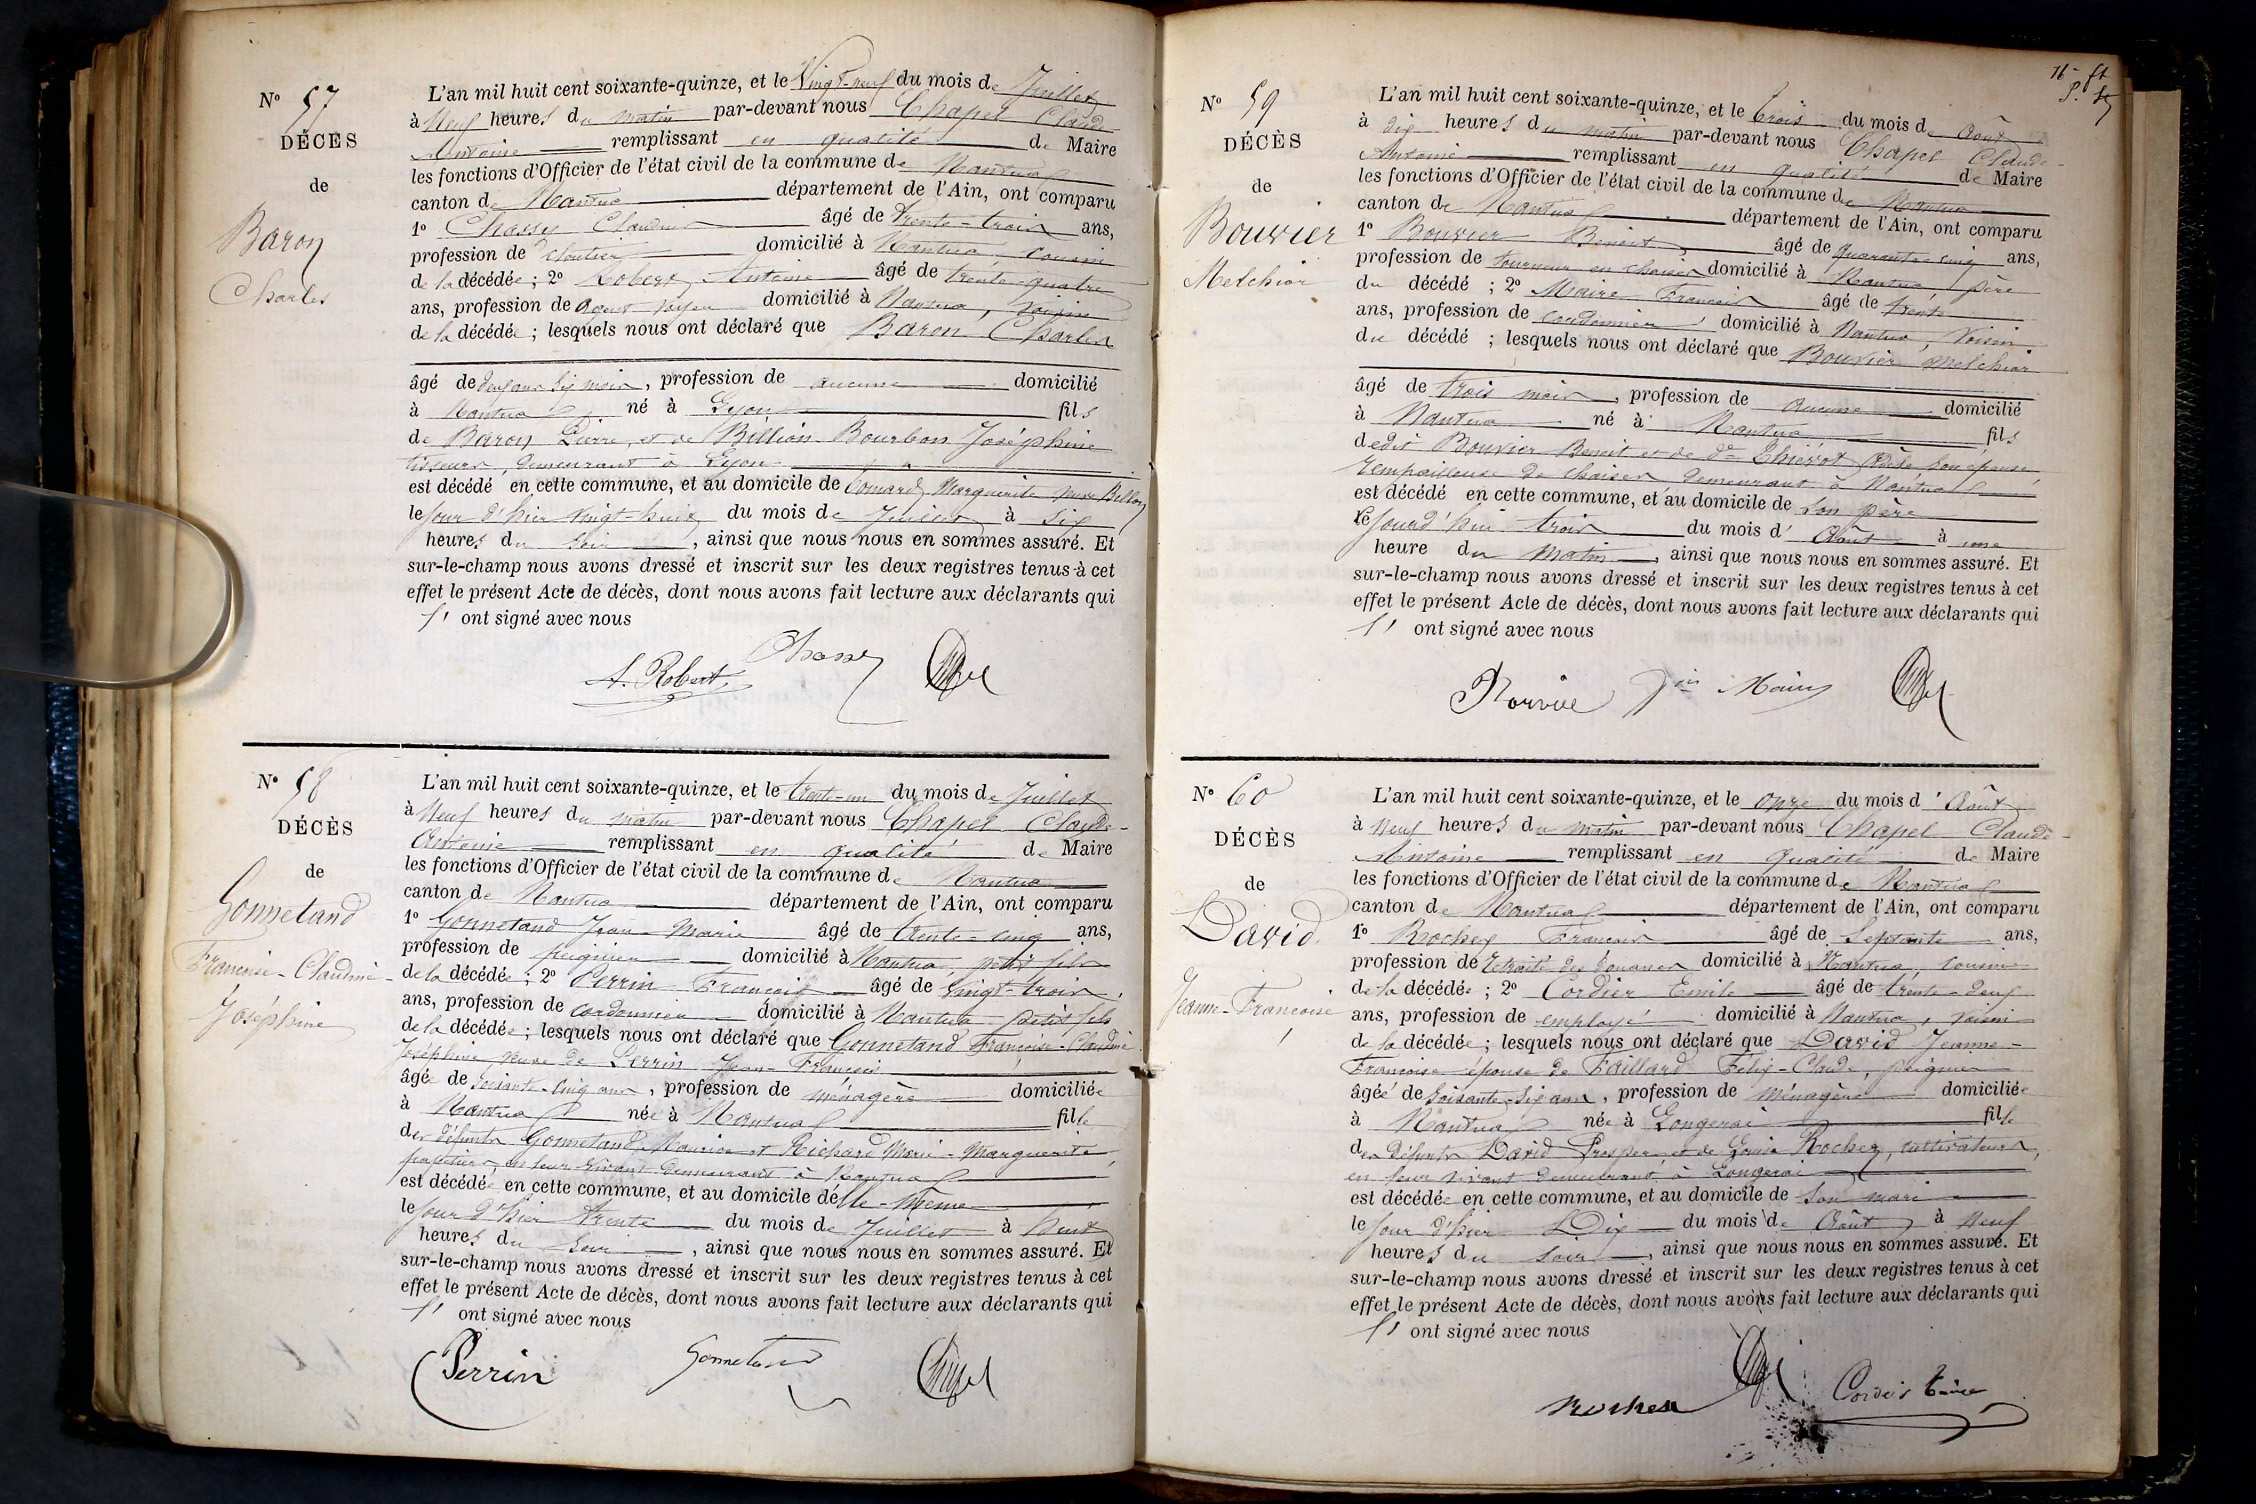 N° 57
DÉCÈS
de
Baron
Charles
L'an mil huit cent soixante-quinze, et le Vingt-neuf du mois de Juillet
à Neuf heures du matin par-devant nous Chapel Claude
Antoine remplissant en qualité de Maire
les fonctions d'Officier de l'état civil de la commune de Nantua
canton de Nantua département de l'Ain, ont comparu
1° Chassy Claudius âgé de trente-trois ans,
profession de cloutier domicilié à Nantua, cousin
de la décédée ; 2° Robert Antoine âgé de trente-quatre
ans, profession de agent voyer domicilié à Nantua, voisin
de la décédée ; lesquels nous ont déclaré que Baron Charles
âgé de deux ans six mois, profession de aucune domicilié
à Nantua né à Lyon fils
de Baron Pierre, et de Billion-Bourbon Joséphine
tisseurs, demeurant à Lyon
est décédé en cette commune, et au domicile de Marguerite veuve Billon
le jour d'hier vingt-huit du mois de Juillet à six
heures du soir, ainsi que nous nous en sommes assuré. Et
sur-le-champ nous avons dressé et inscrit sur les deux registres tenus à cet
effet le présent Acte de décès, dont nous avons fait lecture aux déclarants qui
ont signé avec nous
Chassy
A. Robert
N° 58
DÉCÈS
de
Gonnetand
Françoise-Claudine-
Joséphine
L'an mil huit cent soixante-quinze, et le trente-un du mois de Juillet
à Neuf heures du matin par-devant nous Chapel Claude-
Antoine remplissant en qualité de Maire
les fonctions d'Officier de l'état civil de la commune de Nantua
canton de Nantua département de l'Ain, ont comparu
1° Gonnetand Jean-Marie âgé de trente-cinq ans,
profession de peignier domicilié à Nantua, petit fils
de la décédée ; 2° Perrin François âgé de vingt-trois
ans, profession de cordonnier domicilié à Nantua petit fils
de la décédée ; lesquels nous ont déclaré que Gonnetand Françoise-Claudine
Joséphine veuve de Perrin Jean-François
âgée de soixante-cinq ans, profession de ménagère domiciliée
à Nantua née à Nantua fille
des défunts Gonnetand Maurice et Richard Marie-Marguerite,
papetiers, en leur vivant demeurant à Nantua
est décédée en cette commune, et au domicile d'elle-même
le jour d'hier trente du mois de Juillet à huit
heures du soir, ainsi que nous nous en sommes assuré. Et
sur-le-champ nous avons dressé et inscrit sur les deux registres tenus à cet
effet le présent Acte de décès, dont nous avons fait lecture aux déclarants qui
ont signé avec nous
Perrin Gonnetand
N° 59
DÉCÈS
de
Bouvier
Melchior
L'an mil huit cent soixante-quinze, et le trois du mois de Août
à dix heures du matin par-devant nous Chapel Claude-
Antoine remplissant en qualité de Maire
les fonctions d'Officier de l'état civil de la commune de Nantua
canton de Nantua département de l'Ain, ont comparu
1° Bouvier Benoit âgé de quarante-cinq ans,
profession de tourneur en chaises domicilié à Nantua, père
du décédé ; 2° Maire François âgé de trente
ans, profession de cordonnier domicilié à Nantua, voisin
du décédé ; lesquels nous ont déclaré que Bouvier Melchior
âgé de trois mois, profession de aucune domicilié
à Nantua né à Nantua fils
dedit Bouvier Benoit et de De Thiévot Odile son épouse,
rempailleuse de chaises demeurant à Nantua
est décédé en cette commune, et au domicile de son père
le jourd'hui trois du mois d'Août à une
heure du matin, ainsi que nous nous en sommes assuré. Et
sur-le-champ nous avons dressé et inscrit sur les deux registres tenus à cet
effet le présent Acte de décès, dont nous avons fait lecture aux déclarants qui
ont signé avec nous
N° 60
DÉCÈS
de
David
Jeanne-Françoise
L'an mil huit cent soixante-quinze, et le onze du mois d'Août
à Neuf heures du matin par-devant nous Chapel Claude-
Antoine remplissant en qualité de Maire
les fonctions d'Officier de l'état civil de la commune de Nantua
canton de Nantua département de l'Ain, ont comparu
1° Rochez François âgé de Septante ans,
profession de retraité des douanes domicilié à Nantua, cousin
de la décédée ; 2° Cordier Emile âgé de trente-deux
ans, profession de employé domicilié à Nantua, voisin
de la décédée ; lesquels nous ont déclaré que David Jeanne-
Françoise épouse de Faillard Félix-Claude, peignier
âgée de soixante-six ans, profession de ménagère domiciliée
à Nantua née à Longerai fille
des défunts David Prosper, et de Louise Rochez, cultivateurs,
en leur vivant demeurant à Longerai
est décédée en cette commune, et au domicile de son mari
le jour d'hier Dix du mois de Août à Neuf
heures du soir, ainsi que nous nous en sommes assuré. Et
sur-le-champ nous avons dressé et inscrit sur les deux registres tenus à cet
effet le présent Acte de décès, dont nous avons fait lecture aux déclarants qui
ont signé avec nous